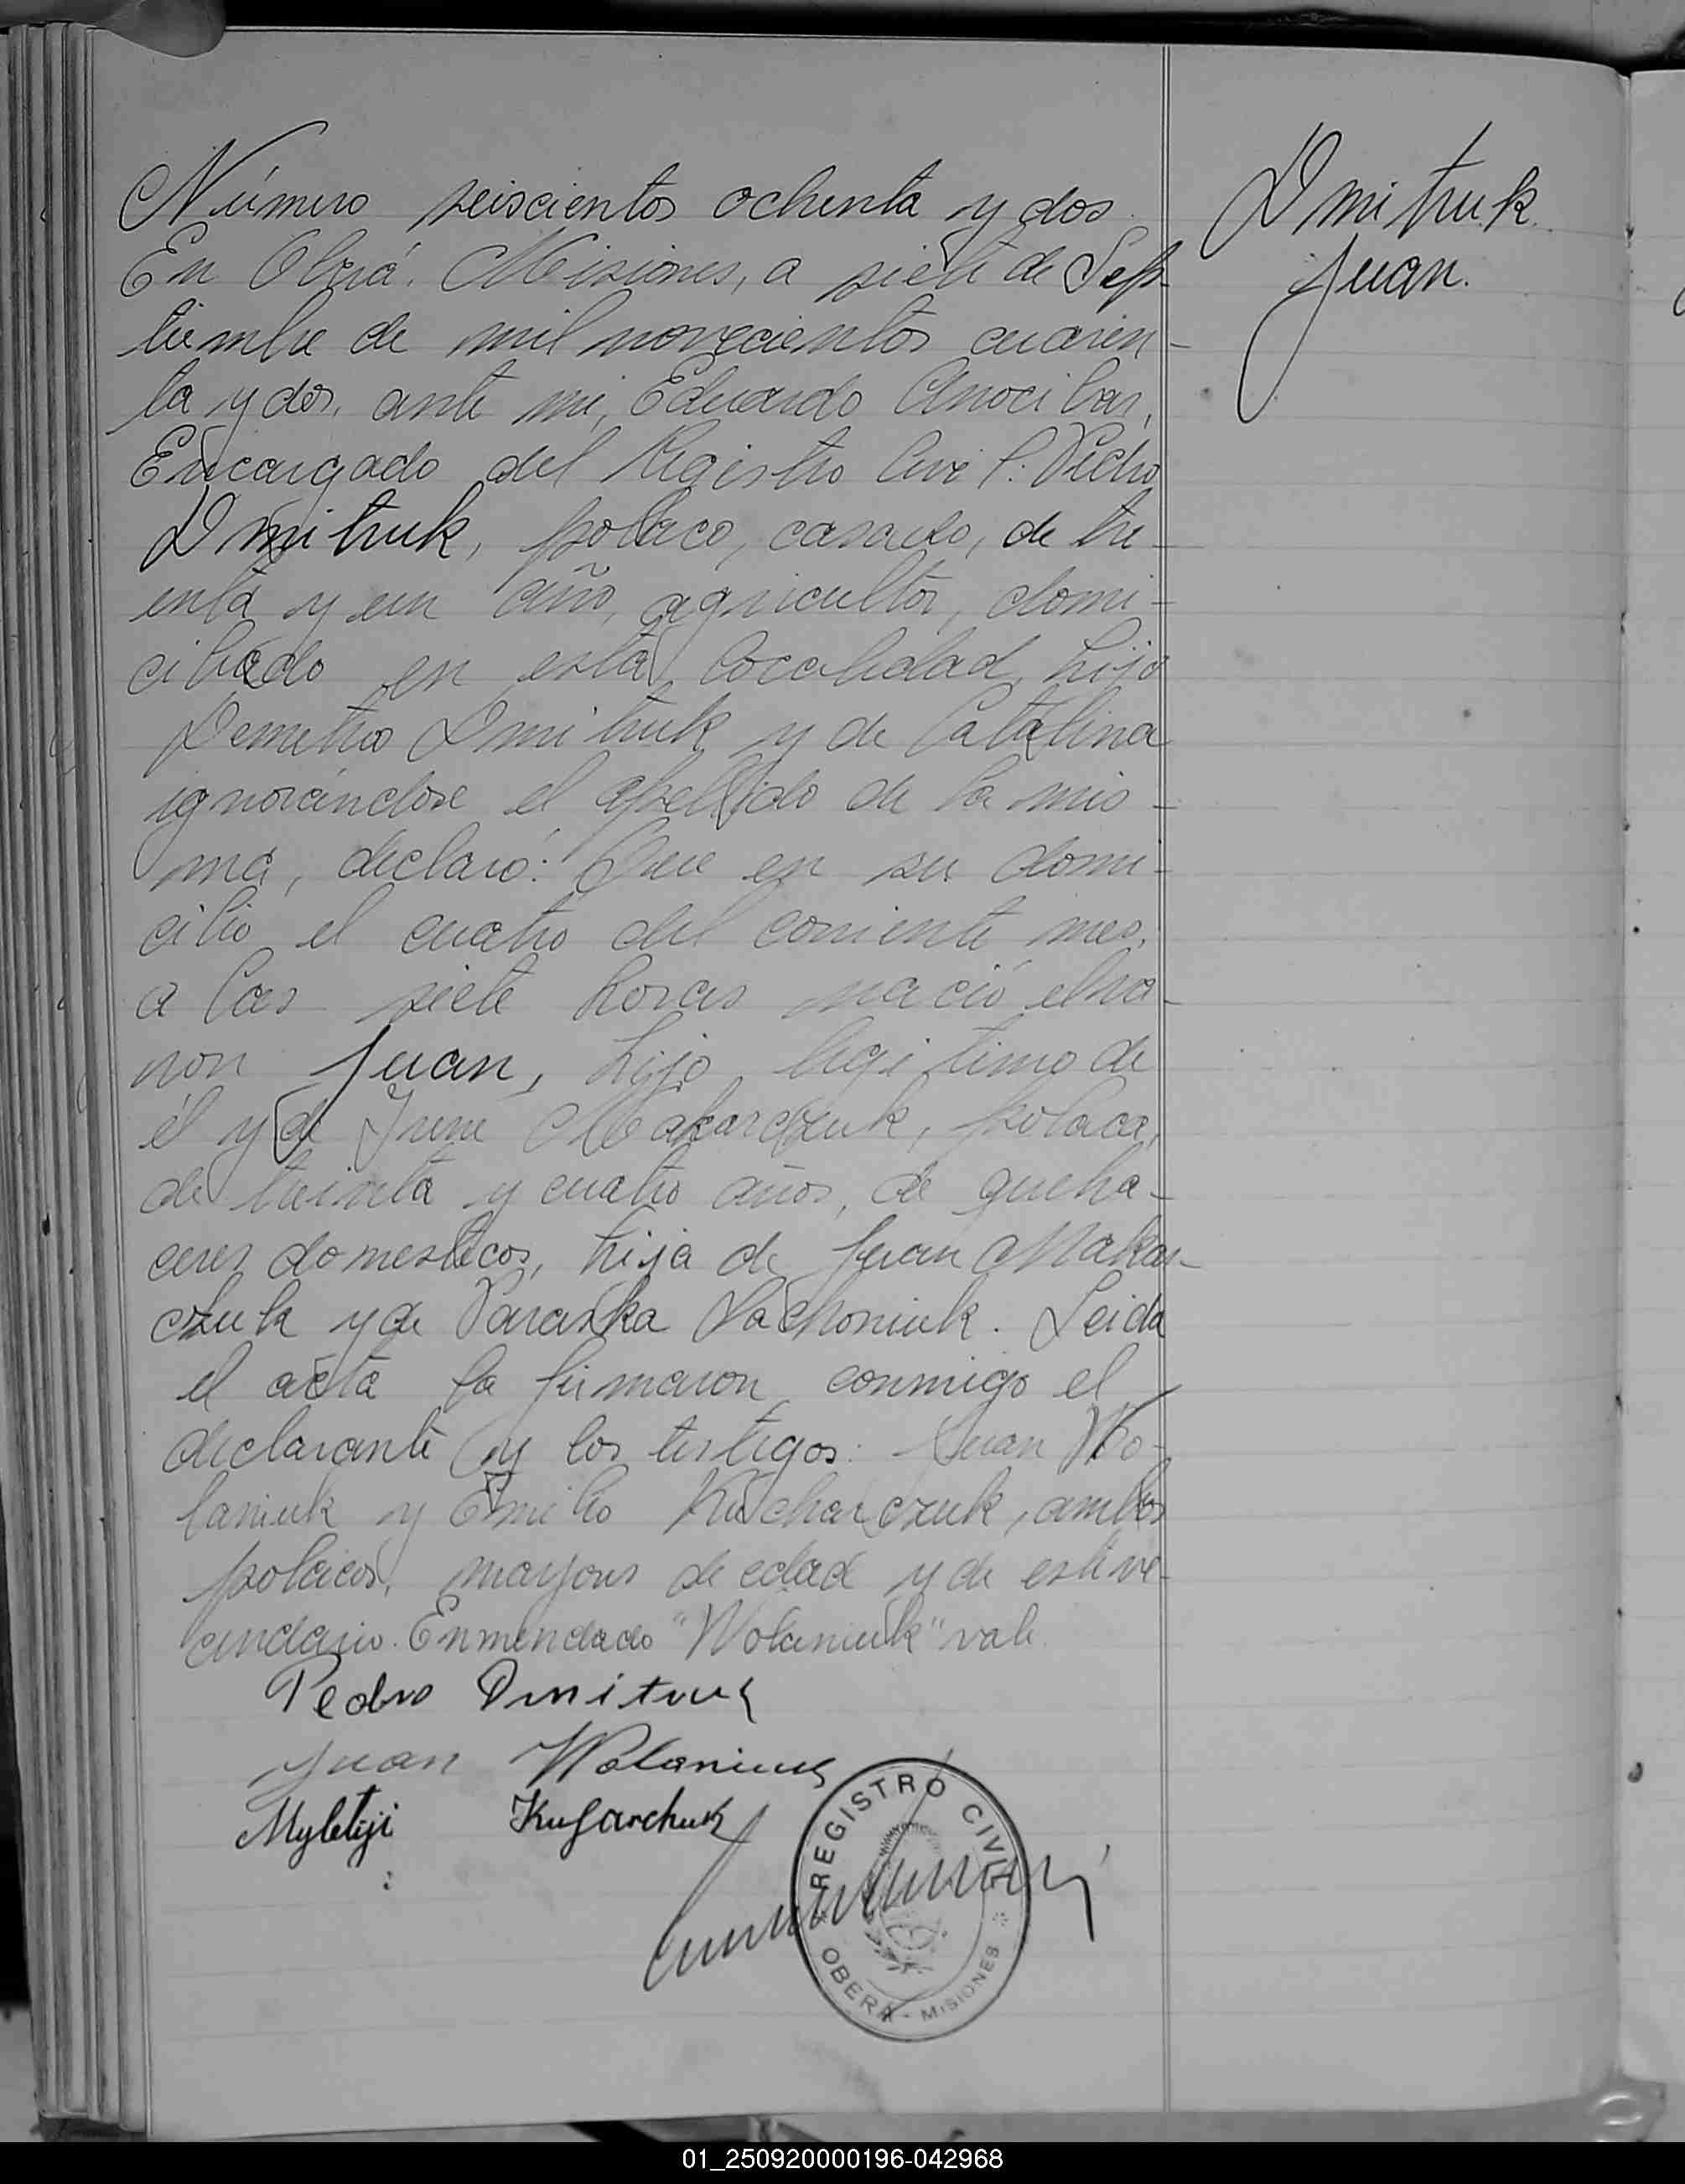 Número seiscientos ochenta y dos
Dmitruk
Juan.
En Oberá. Misiones, a siete de Sep-
tiembre de mil novecientos cuaren-
ta y dos, ante mi, Eduardo Anocibar,
Encargado del Registro Civil: Pedro
Dmitruk, polaco, casado, de tre-
inta y un año, agricultor, domi-
ciliado en esta localidad, hijo
Demetrio Dmitruk y de Catalina
ignorándose el apellido de la mis-
ma, declaró: Que en su domi-
cilio el cuatro del corriente mes,
a las siete horas nació el va-
ron Juan, hijo legitimo de
él y de Irene Makarczuk, polaca,
de treinta y cuatro años, de queha-
ceres domesticos, hija de Juan Makar-
czuk y de Paraska Lachoniuk. Leida
el acta la firmaron conmigo el
declarante y los testigos: Juan Wo-
laniuk y Emilio Kucharczuk, ambos
polacos, mayores de edad y de este ve-
cindario. Enmendado "Wolaniuk" vale.
Pedro Dmitruk
Juan Wolaniuk
Myletyji Kugarchuk
REGISTRO CIVIL
OBERÁ - MISIONES
01_250920000196-042968